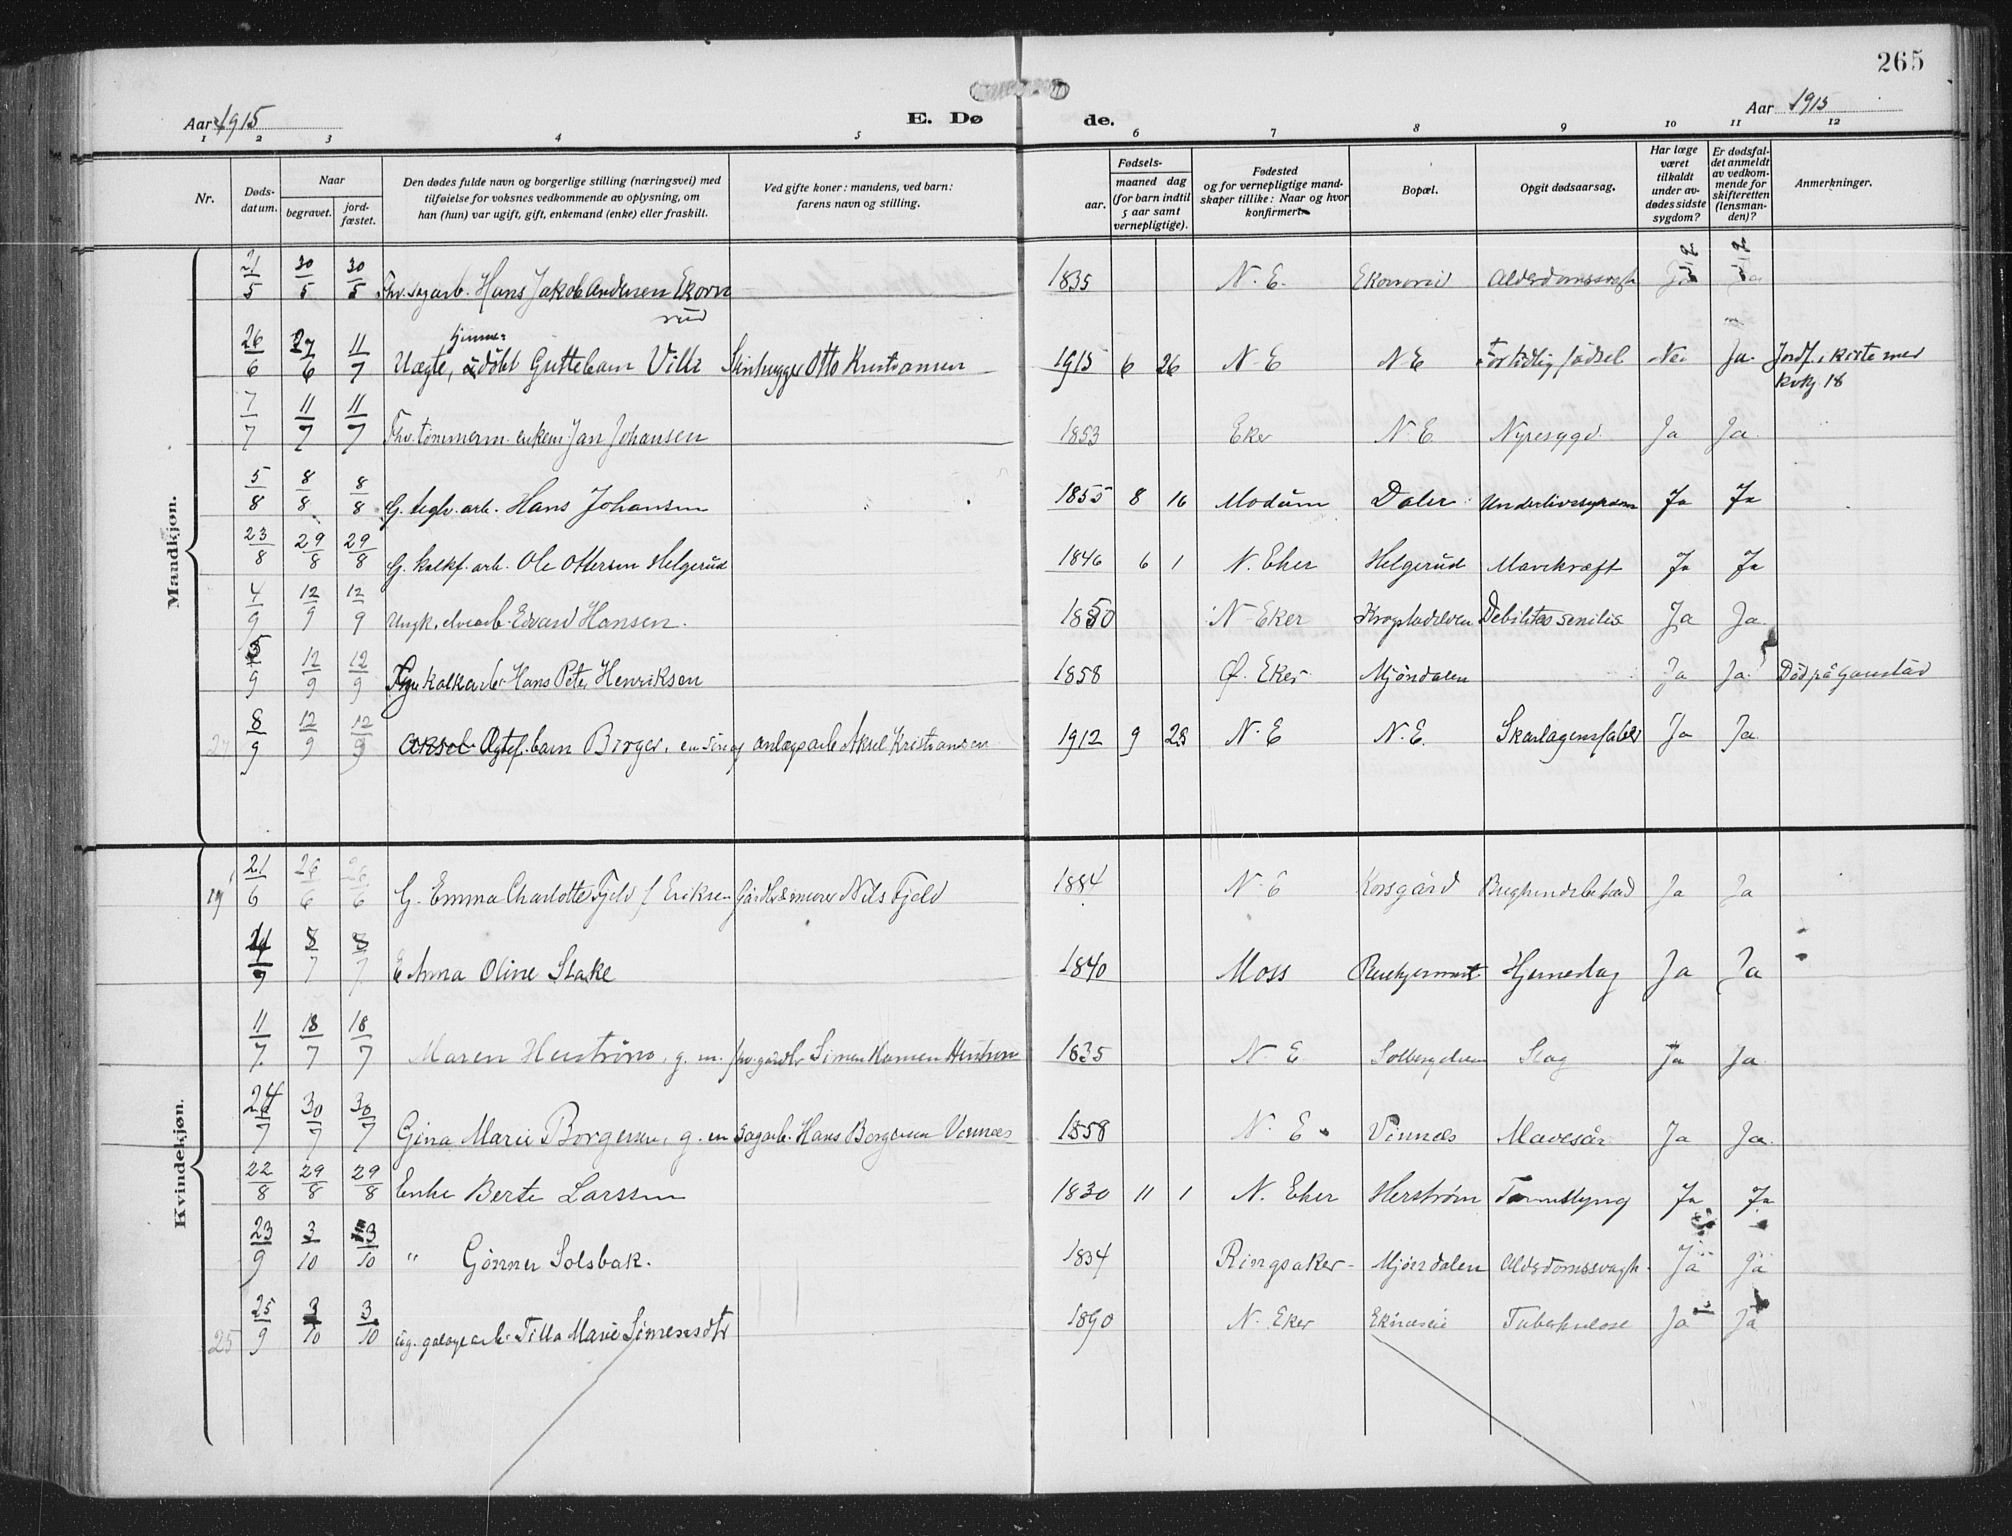 265
Aar 1915
E. Dø
de.
Aar 1915
1 2 3 4 5 6 7 8 9 10 11 12
Nr.
Døds-
datum.
Naar
begravet.
jord-
fæstet.
Den dødes fulde navn og borgerlige stilling (næringsvei) med
tilføielse for voksnes vedkommende av oplysning, om
han (hun) var ugift, gift, enkemand (enke) eller fraskilt.
Ved gifte koner: mandens, ved barn:
farens navn og stilling.
Fødsels-
aar.
maaned dag
(for barn indtil
5 aar samt
vernepligtige).
Fødested
og for vernepligtige mand-
skaper tillike: Naar og hvor
konfirmert.
Bopæl.
Opgit dødsaarsag.
Har læge
været
tilkaldt
under av-
dødes sidste
sygdom?
Er dødsfal-
det anmeldt
av vedkom-
mende for
skifteretten
(lensman-
den)?
Anmerkninger.
Mandkjøn.
21/5 30/5 30/5 Fhv. sagarb. Hans Jakob Andersen Ekorn
rud 1835 N. E. Ekornrud Alderdomssvagh
26/6 27/6 11/7 Uægte, hjemme-døbt Guttebarn Villi Stenhugger Otto Kristiansen 1915 6 26 N. E N E For tidlig fødsel Nei Ja. Jordf. i kiste med
kvkj. 18
7/7 11/7 11/7 Fhv. tømmerm. enkem. Jan Johansen 1853 Eker N. E. Nyresygd. Ja Ja.
5/8 8/8 8/8 G. teglv. arb. Hans Johansen 1855 8 16 Modum Daler Underlivssygdom Ja Ja
23/8 29/8 29/8 G. kalkf. arb. Ole Ottersen Helgerud 1846 6 1 N. Eker Helgerud Mavekræft Ja Ja
4/9 12/9 12/9 Ungk. elvearb. Edvard Hansen. 1850 N. Eker Krogstadelven Debilitas senilis Ja Ja.
5/9 12/9 12/9 kalkarb. Hans Peter Henriksen 1858 Ø. Eker Mjøndalen Ja Ja. Død på Gaustad
27 8/9 12/9 12/9 Ægtef. barn Birger, en søn af anlægsarb Aksel Kristiansen 1912 9 28 N. E N. E. Skarlagensfeber Ja Ja
Kvindekjøn.
19 21/6 26/6 26/6 G. Emma Charlotte Fjeld f Eriksen Gårdbr. & murer Nils Fjeld 1884 N. E Korsgård Brughindebetænd Ja Ja
8/7 8/7 E Anna Oline Stake 1840 Moss Hjerneslag Ja Ja
11/7 18/7 18/7 Maren Herstrøm, g. m. fhv. gårdbr Simen Hansen 1835 N. E. Solbergelven Slag Ja Ja.
24/7 30/7 30/7 Gina Marie Borgersen, g. m sagarb. Hans Borgersen Vinnæs 1858 N. E. Vinnæs Mavesår Ja Ja.
22/8 29/8 29/8 Enke Berte Larssen 1830 11 1 N. Eker Herstrøm Tarmslyng Ja Ja
23/9 3/10 3/10 " Gønner Solsbak. 1834 Ringsaker Mjøndalen Alderdomssvagh. Ja Ja
25 25/9 3/10 3/10 ug. Tilla Marie Simensdtr 1890 N. Eker Tuberkulose Ja Ja